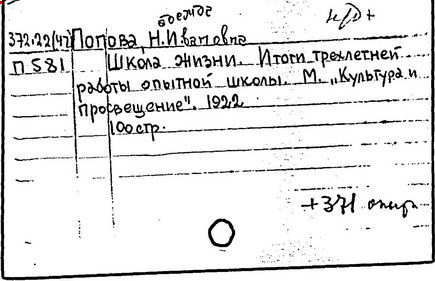 372.22(47) Попова, Н. Ивановна
П 581 Школа жизни. Итоги трехлетней
работы опытной школы. М. „Культура и
просвещение". 1922
100 стр.
+371